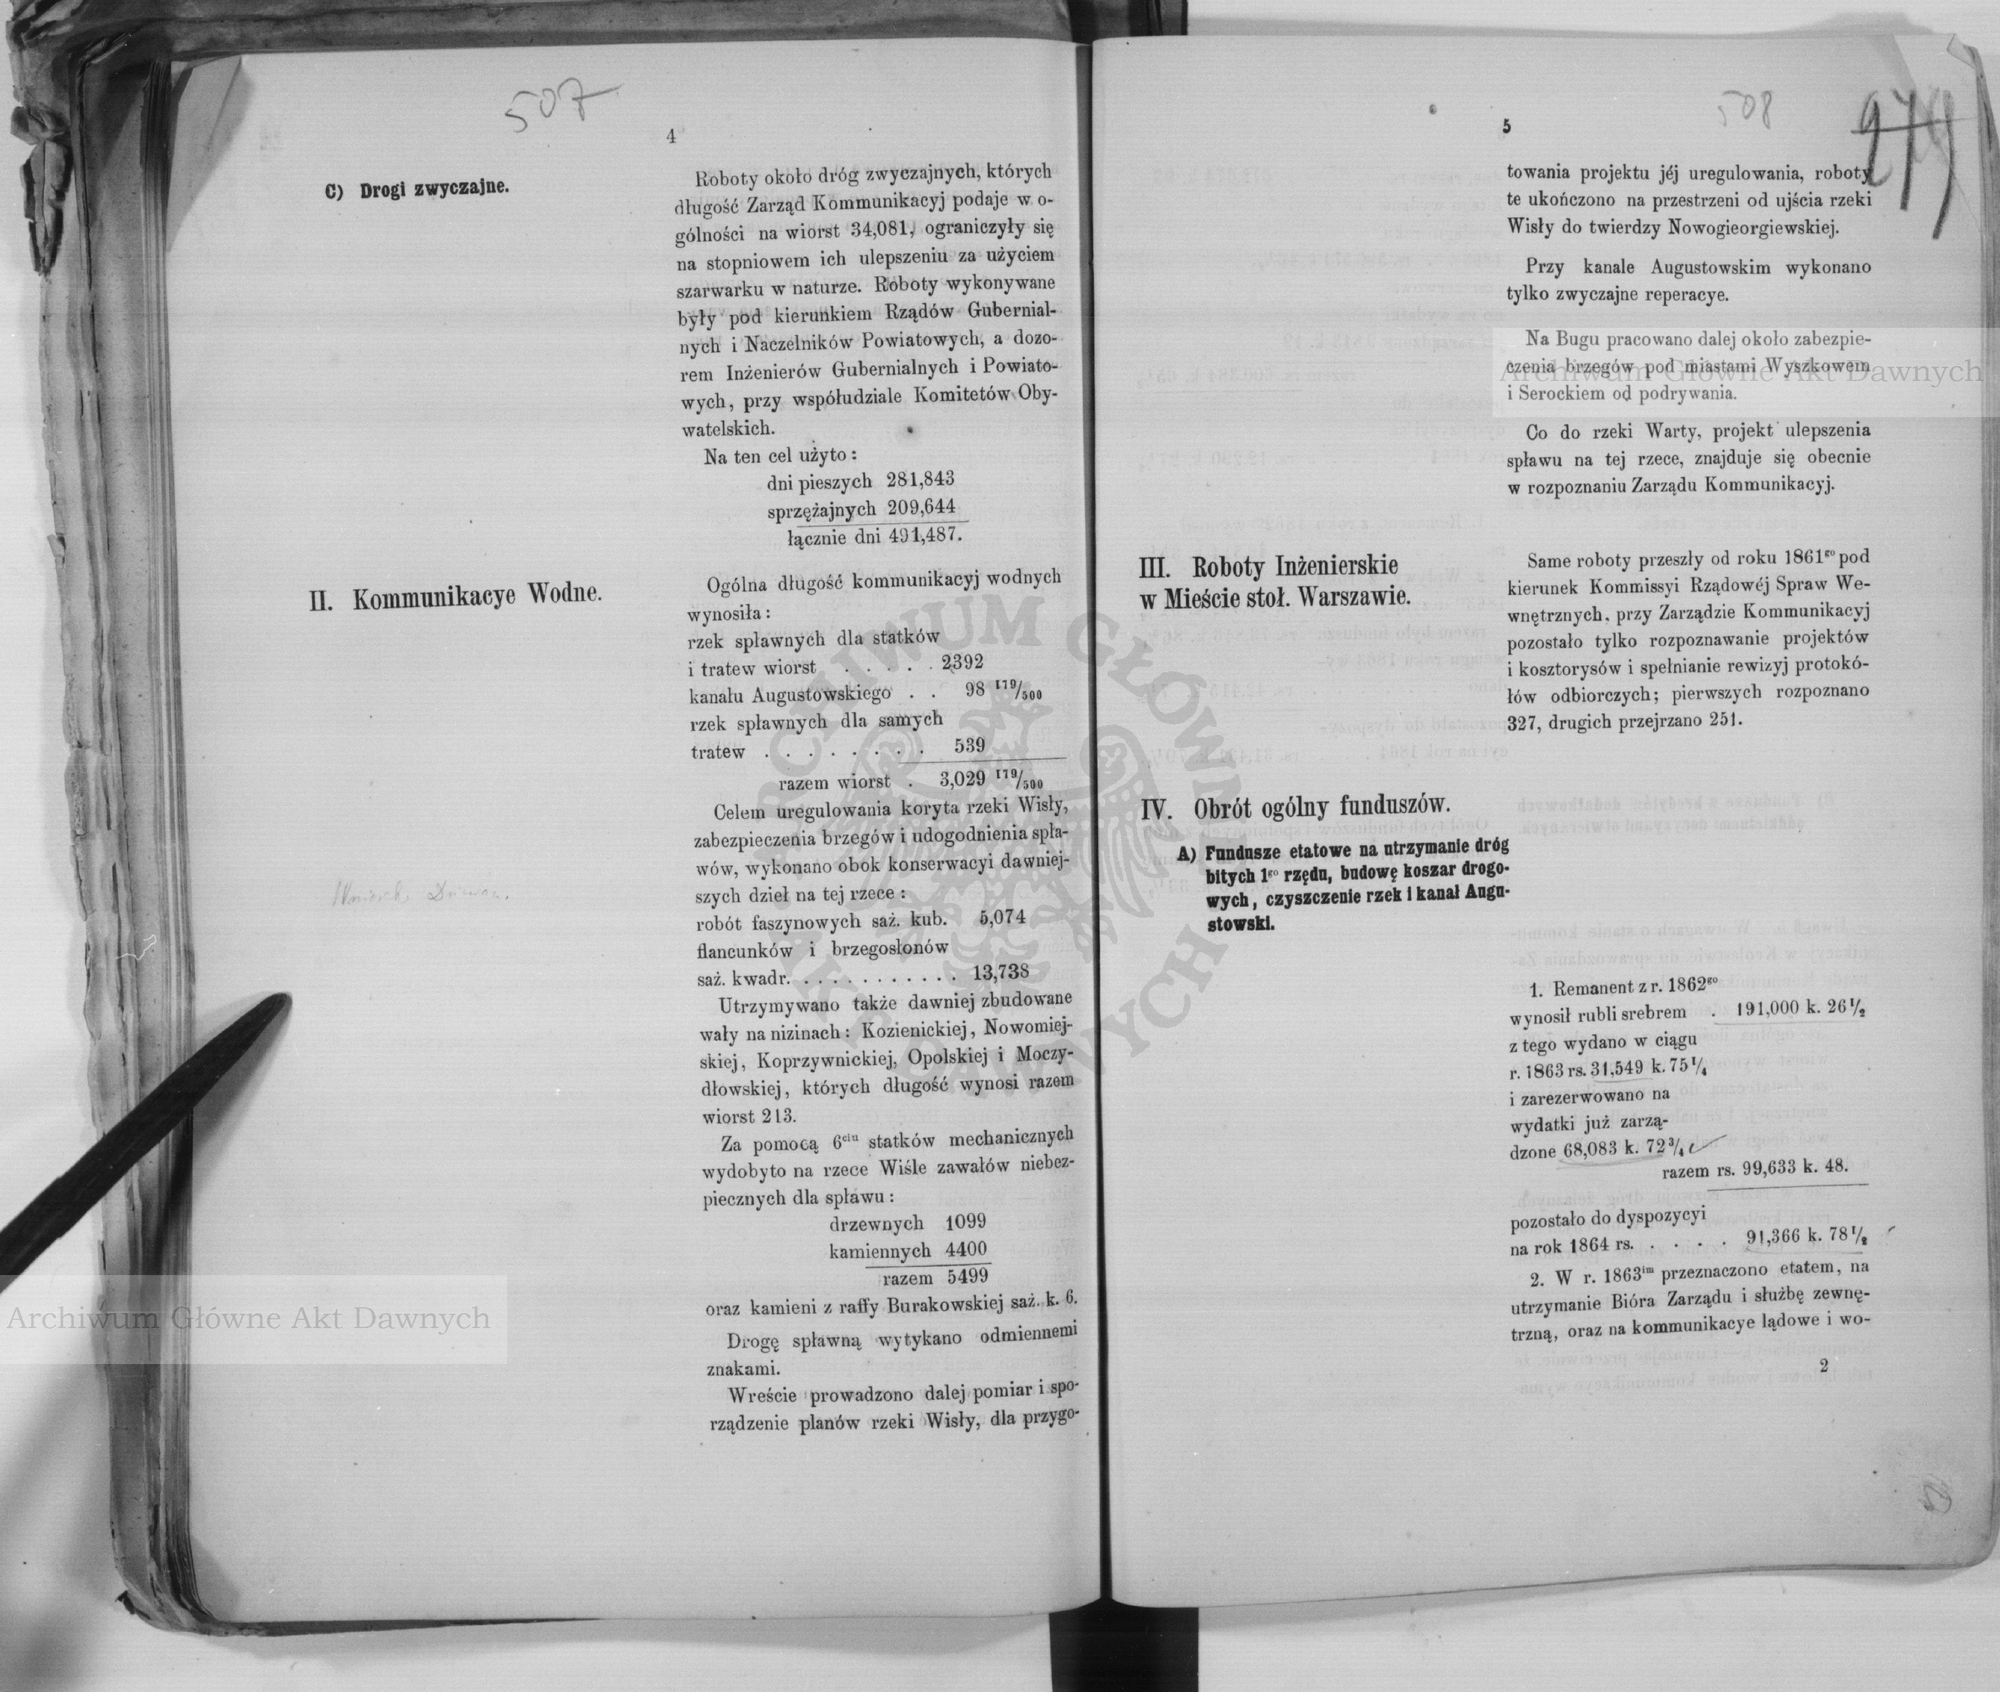 507
4
C) Drogi zwyczajne.
Roboty około dróg zwyczajnych, których
długość Zarząd Kommunikacyj podaje w o-
gólności na wiorst 34,081, ograniczyły się
na stopniowem ich ulepszeniu za użyciem
szarwarku w naturze. Roboty wykonywane
były pod kierunkiem Rządów Gubernial-
nych i Naczelników Powiatowych, a dozo-
rem Inżenierów Gubernialnych i Powiato-
wych, przy współudziale Komitetów Oby-
watelskich.
Na ten cel użyto:
dni pieszych 281,843
sprzężajnych 209,644
łącznie dni 491,487.
II. Kommunikacye Wodne.
Ogólna długość kommunikacyj wodnych
wynosiła:
rzek spławnych dla statków
i tratew wiorst . . . . . 2392
kanału Augustowskiego . . 98 179/500
rzek spławnych dla samych
tratew . . . . . . . . . 539
razem wiorst . 3,029 179/500
Celem uregulowania koryta rzeki Wisły,
zabezpieczenia brzegów i udogodnienia spła-
wów, wykonano obok konserwacyi dawniej-
szych dzieł na tej rzece:
robót faszynowych saż. kub. 5,074
flancunków i brzegosłonów
saż. kwadr. . . . . . . . . . . 13,738
Utrzymywano także dawniej zbudowane
wały na nizinach: Kozienickiej, Nowomiej-
skiej, Koprzywnickiej, Opolskiej i Moczy-
dłowskiej, których długość wynosi razem
wiorst 213.
Za pomocą 6ciu statków mechanicznych
wydobyto na rzece Wiśle zawałów niebez-
piecznych dla spławu:
drzewnych 1099
kamiennych 4400
razem 5499
oraz kamieni z raffy Burakowskiej saż. k. 6.
Drogę spławną wytykano odmiennemi
znakami.
Wreście prowadzono dalej pomiar i spo-
rządzenie planów rzeki Wisły, dla przygo-
508
279
5
towania projektu jéj uregulowania, roboty
te ukończono na przestrzeni od ujścia rzeki
Wisły do twierdzy Nowogieorgiewskiej.
Przy kanale Augustowskim wykonano
tylko zwyczajne reperacye.
Na Bugu pracowano dalej około zabezpie-
czenia brzegów pod miastami Wyszkowem
i Serockiem od podrywania.
Co do rzeki Warty, projekt ulepszenia
spławu na tej rzece, znajduje się obecnie
w rozpoznaniu Zarządu Kommunikacyj.
III. Roboty Inżenierskie
w Mieście stoł. Warszawie.
Same roboty przeszły od roku 1861go pod
kierunek Kommissyi Rządowéj Spraw We-
wnętrznych, przy Zarządzie Kommunikacyj
pozostało tylko rozpoznawanie projektów
i kosztorysów i spełnianie rewizyj protokó-
łów odbiorczych; pierwszych rozpoznano
327, drugich przejrzano 251.
IV. Obrót ogólny funduszów.
A) Fundusze etatowe na utrzymanie dróg
bitych 1go rzędu, budowę koszar drogo-
wych, czyszczenie rzek i kanał Augu-
stowski.
1. Remanent z r. 1862go
wynosił rubli srebrem . 191,000 k. 26 1/2
z tego wydano w ciągu
r. 1863 rs. 31,549 k. 75 1/4
i zarezerwowano na
wydatki już zarzą-
dzone 68,083 k. 72 3/4
razem rs. 99,633 k. 48.
pozostało do dyspozycyi
na rok 1864 rs. . . . . 91,366 k. 78 1/2
2. W r. 1863im przeznaczono etatem, na
utrzymanie Bióra Zarządu i służbę zewnę-
trzną, oraz na kommunikacye lądowe i wo-
2
Archiwum Główne Akt Dawnych
Archiwum Główne Akt Dawnych
ARCHIWUM GŁÓWNE AKT DAWNYCH